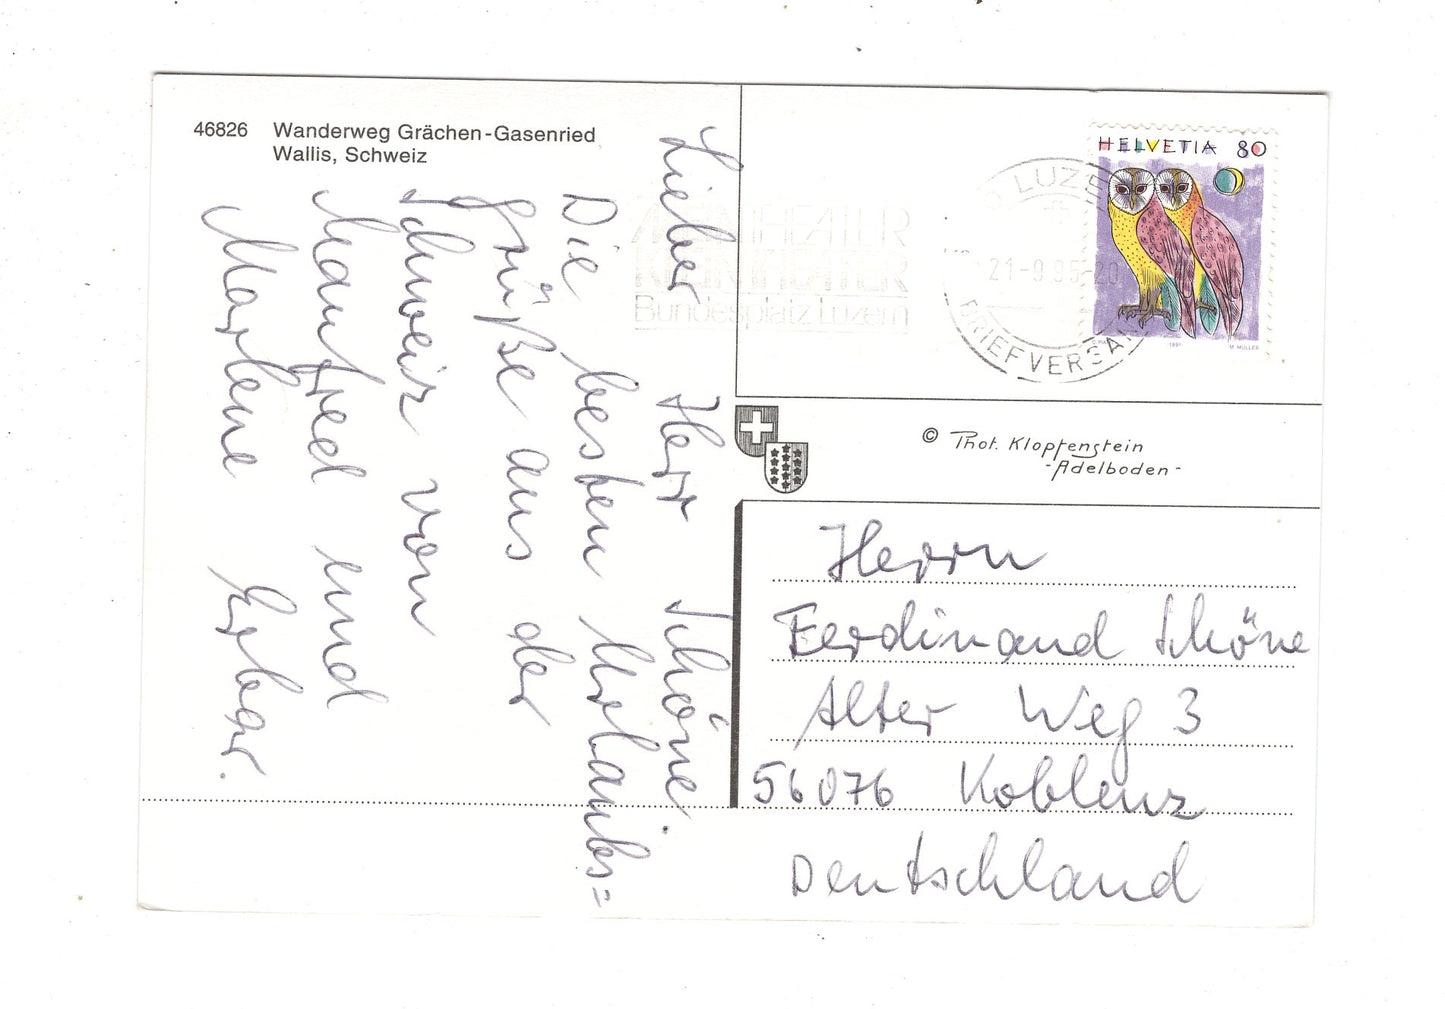 46826 Wanderweg Grächen-Gasenried
Wallis, Schweiz
Lieber Herr Schöne!
Die besten Urlaubs=
Grüße aus der
Schweiz von
Manfred und
Marlene
HELVETIA 80
1991 M. MÜLLER
LUZE
21-9.95-20
BRIEFVERSA
Bundesplatz Luzern
© Phot. Klopfenstein
-Adelboden-
Herrn
Ferdinand Schöne
Alter Weg 3
56076 Koblenz
Deutschland